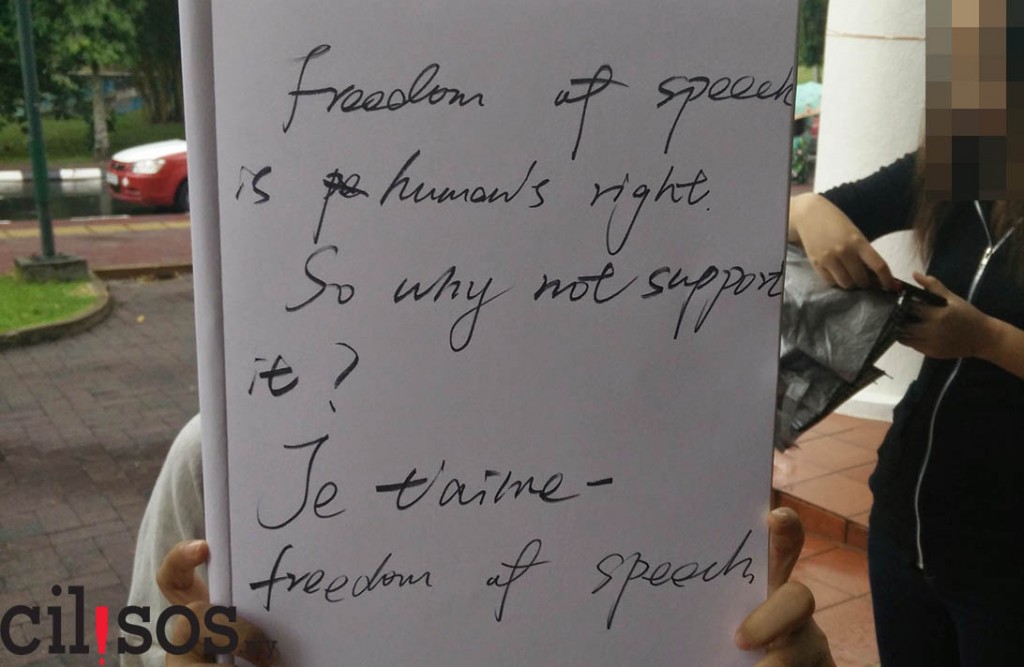 freedom of speech
is human's right.
So why not support
it?
Je t'aime-
freedom of speech
cil!sos